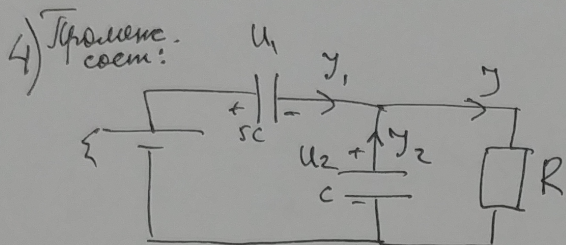 4) Промеж.
сост:
U₁
+ 5C -
J₁
J
ε
U₂ +
J₂
C -
R